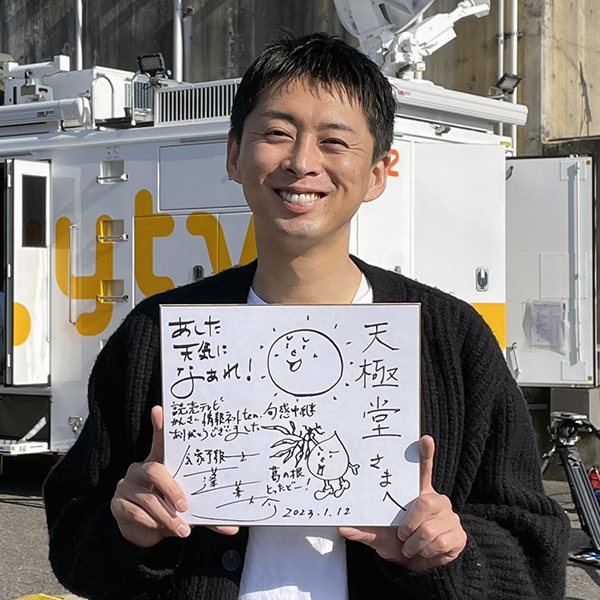 天極堂さまへ
あした
天気に
なぁれ!
読売テレビ
かんさい情報ネットten. 旬感中継
ありがとうございました
気象予報士
蓬莱
介
葛の根
とったどー!
2023.1.12
.ytv
2